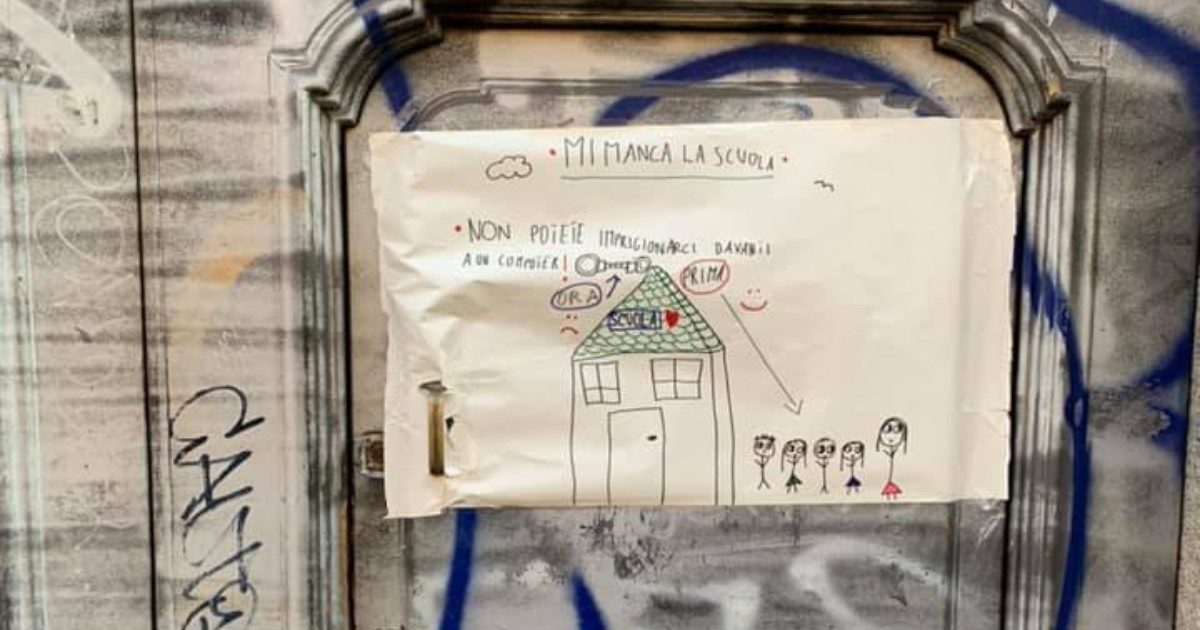 • MI MANCA LA SCUOLA •
• NON POTETE IMPRIGIONARCI DAVANTI
A UN COMPUTER!
ORA
PRIMA
SCUOLA